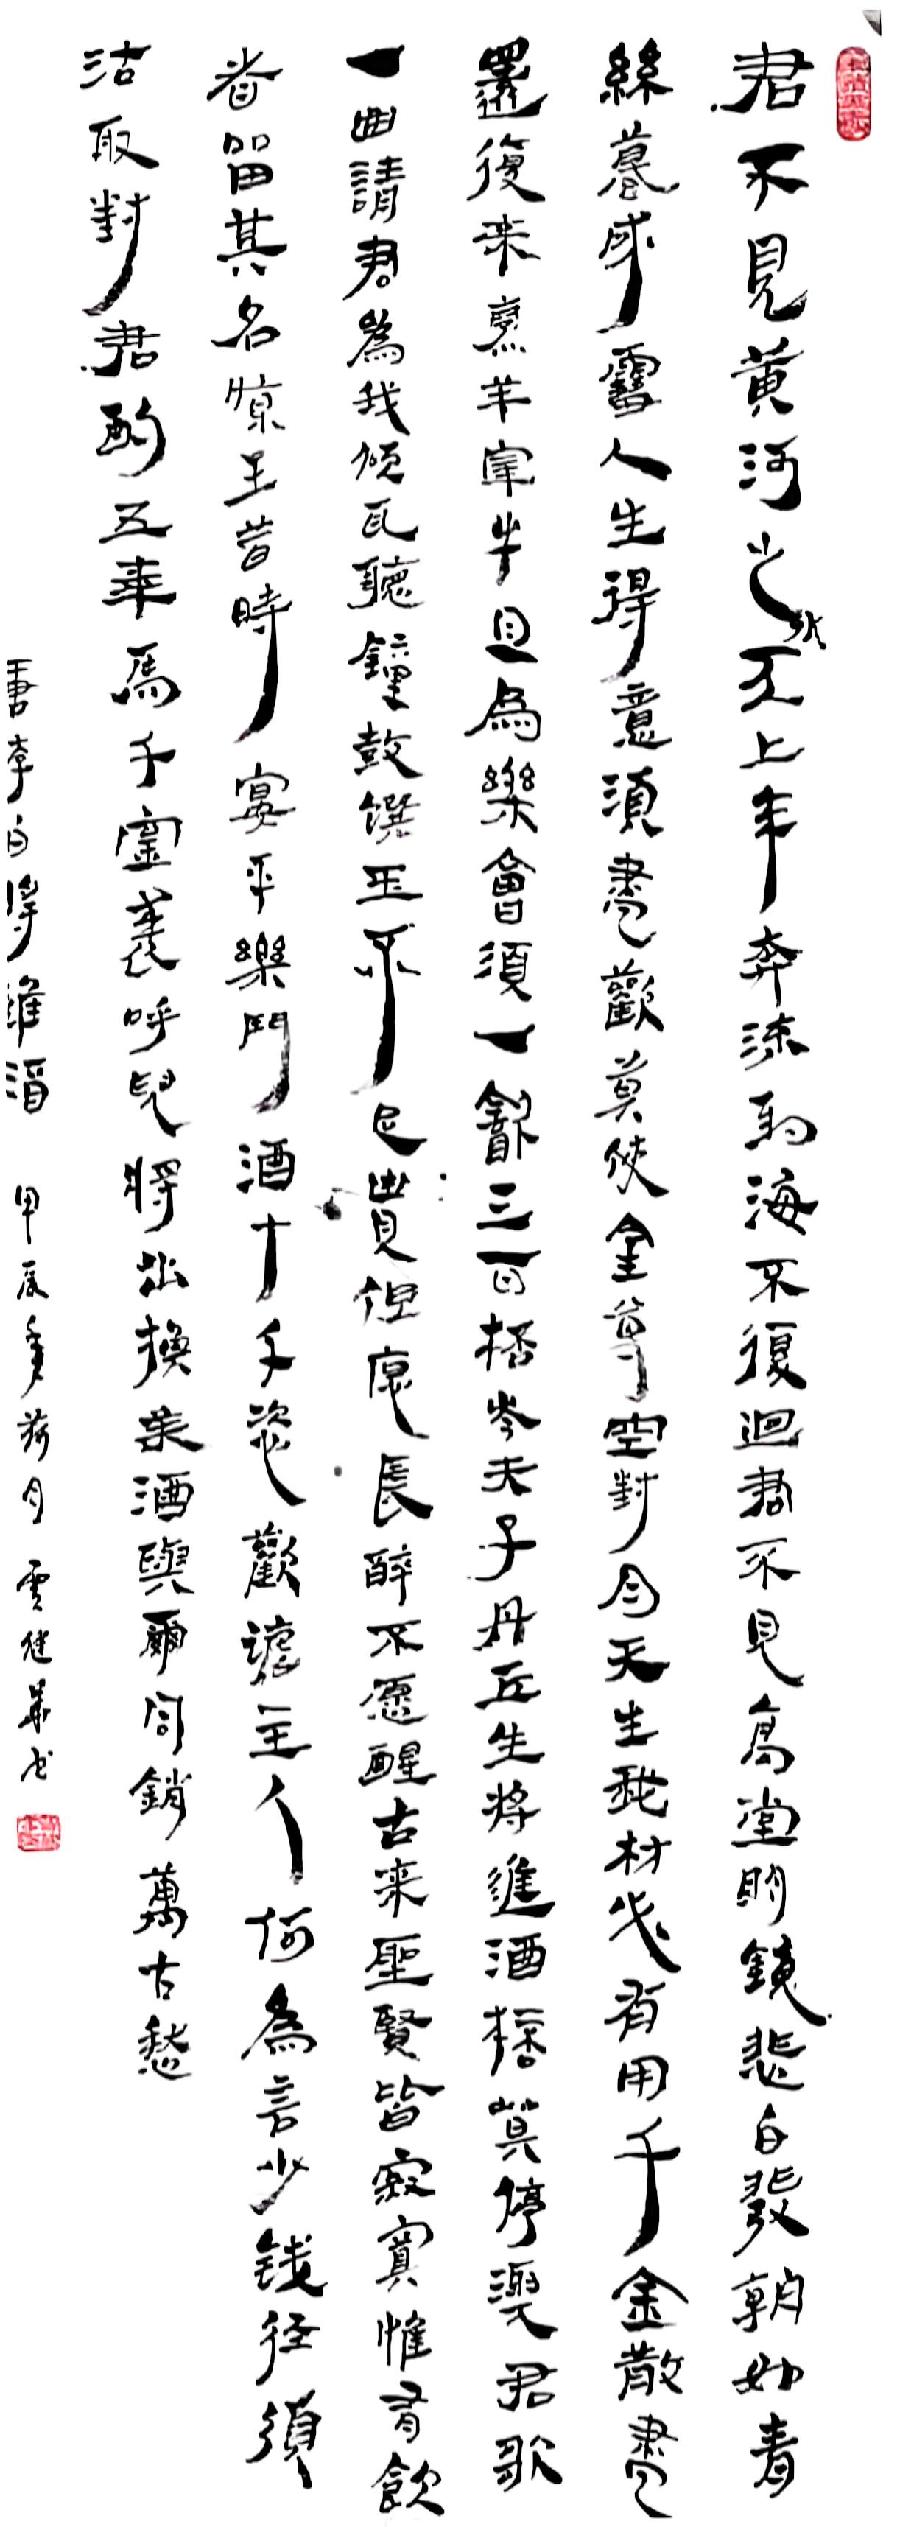 君不見黃河之水天上来奔流到海不復迴君不見高堂明鏡悲白發朝如青
絲暮成雪人生得意須盡歡莫使金尊空對月天生我材必有用千金散盡
還復来烹羊宰牛且為樂會須一飲三百杯岑夫子丹丘生将進酒杯莫停與君歌
一曲請君為我傾耳聽鐘鼓饌玉不足貴但願長醉不愿醒古来聖賢皆寂寞惟有飲
者留其名陳王昔時宴平樂鬥酒十千恣歡謔主人何為言少錢徑須
沽取對君酌五花馬千金裘呼兒將出換美酒與爾同銷萬古愁
唐李白將進酒 甲辰年荷月 雲健華书